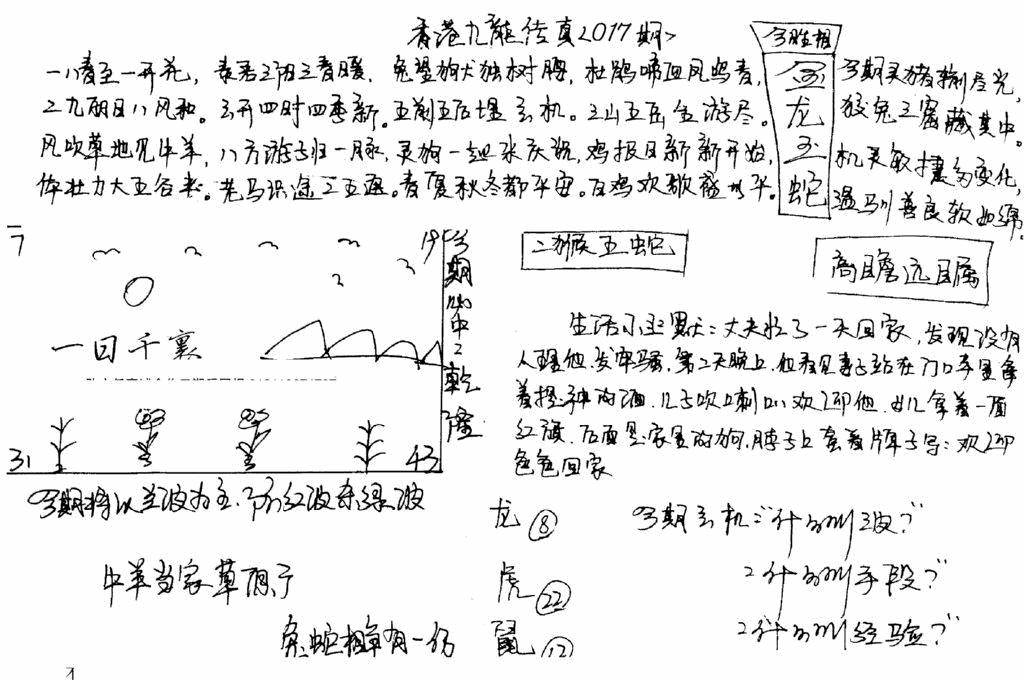 香港九龍传真2017期
今期生相
金龙玉蛇
一八春至一开花，春君三阳三春暖，兔望狗犬独树腾，杜鹃啼血凤鸟春，
二九朝日八风和。云开四时四季新。五前五后埋玄机。三山五岳全游尽。
风吹草地见牛羊，八方游子归一脉，灵狗一起来庆祝，鸡报日新新开始，
体壮力大五谷来。老马识途二五通。春夏秋冬都平安。百鸡欢歌盛水平。
今期灵猪捌尽光，
狡兔三窟藏其中。
机灵敏捷多变化，
温驯善良软如绵。
7
19
一日千裏
31
43
今期心中：乾隆
二猴五蛇
高瞻远瞩
生活小幽默：丈夫忙了一天回家，发现没有
人理他，发牢骚，第二天晚上，他看见妻子站在门口牵里拿
着提神的酒，儿子吹喇叭欢迎他，女儿拿着一面
红旗，后面是家里的狗，脖子上套着牌子写：欢迎
爸爸回家
今期将以兰波为主，防红波杀绿波
龙⑧
今期玄机："什么叫三波？"
牛羊当家草原于
虎㉒
"什么叫手段？"
蛇相争有一份
鼠⑫
"什么叫经验？"